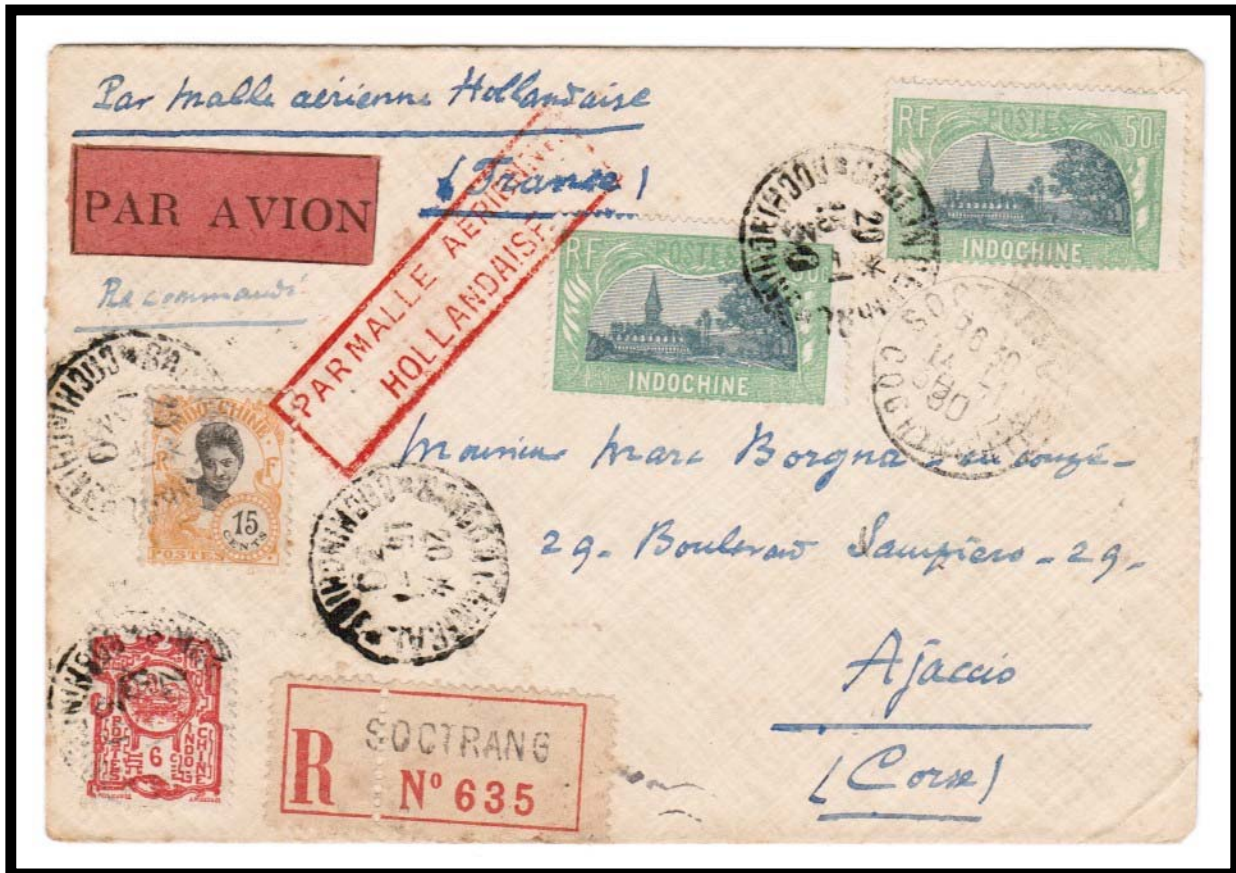 Par malle aérienne Hollandaise
(France)
PAR AVION
Recommandé
PAR MALLE AERIENNE
HOLLANDAISE
RF POSTES 50c
INDOCHINE
RF POSTES
INDOCHINE
INDO-CHINE
R F
15
CENTS
POSTES
Monsieur Marc Borgna en congé
29 - Boulevard Sampiero - 29 -
Ajaccio
(Corse)
POSTES
INDO
CHINE
6
R
SOCTRANG
Nº 635